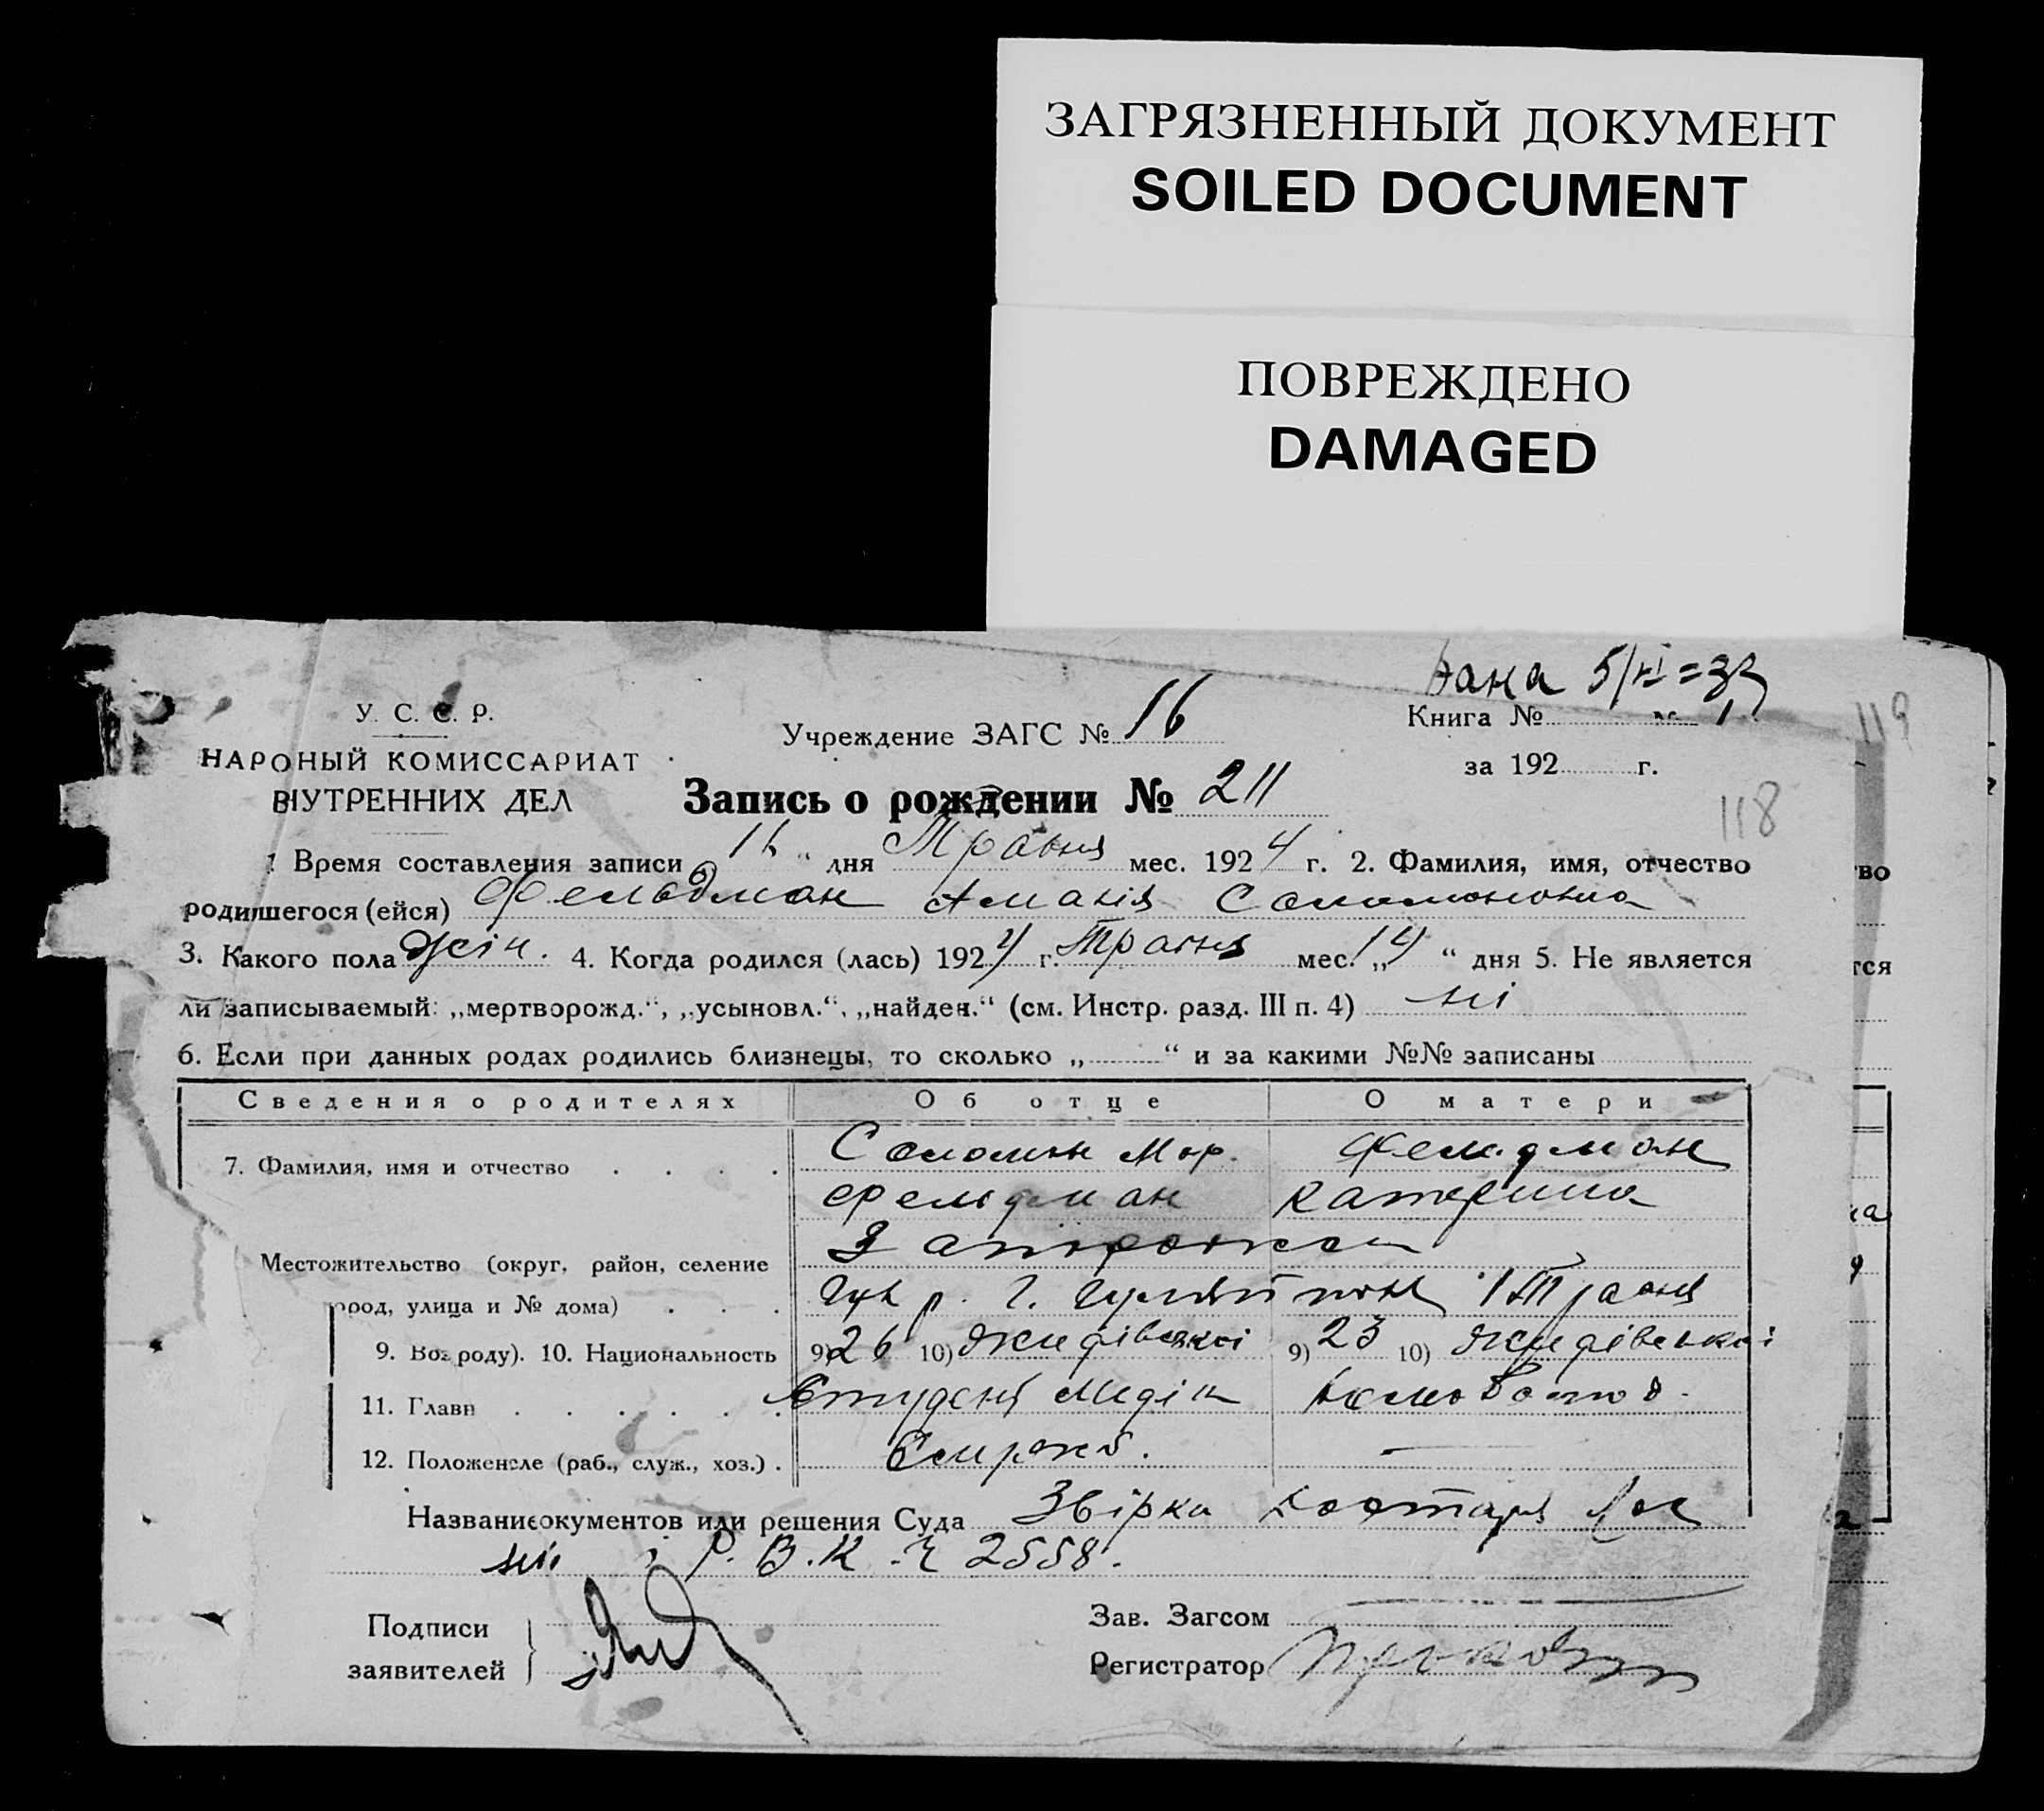 ЗАГРЯЗНЕННЫЙ ДОКУМЕНТ
SOILED DOCUMENT
ПОВРЕЖДЕНО
DAMAGED
дана 5/VI=33
У. С. С. Р.
Учреждение ЗАГС № 16
Книга №
119
НАРОНЫЙ КОМИССАРИАТ
за 192 г.
ВІУТРЕННИХ ДЕЛ
Запись о рождении № 211
118
1 Время составления записи 16 “ дня Травня мес. 1924 г. 2. Фамилия, имя, отчество
родишегося (ейся) Фельдман Амалія Соломоновна
3. Какого пола жін. 4. Когда родился (лась) 1924 г. Травня мес. „14“ дня 5. Не является
ли записываемый: „мертворожд.“, „усыновл.“, „найден.“ (см. Инстр. разд. III п. 4) ні
6. Если при данных родах родились близнецы, то сколько „ “ и за какими №№ записаны
Сведения о родителях Об отце О матери
7. Фамилия, имя и отчество Соломон Мар. Фельдман
Фельдман Катерина
Местожительство (округ, район, селение
ород, улица и № дома) р. Травня
9. Воз роду). 10. Национальность 9) 26 10) жидівської 9) 23 10) жидівської
11. Главн Студент Медік
12. Положенеле (раб., служ., хоз.)
Название окументов или решения Суда Звірка
Р. В. К. Ч 2558.
Подписи
заявителей
Зав. Загсом
Регистратор